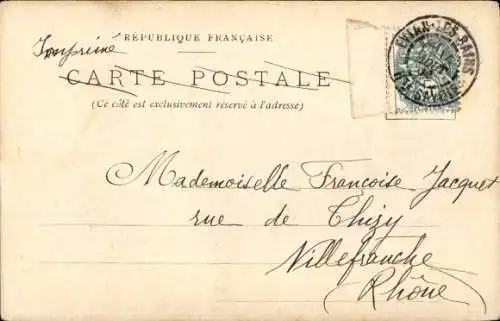 RÉPUBLIQUE FRANÇAISE
Imprimé
CARTE POSTALE
(Ce côté est exclusivement réservé à l'adresse)
EVIAN-LES-BAINS
HTE SAVOIE
Mademoiselle Françoise Jacquet
rue de Thizy
Villefranche
Rhône